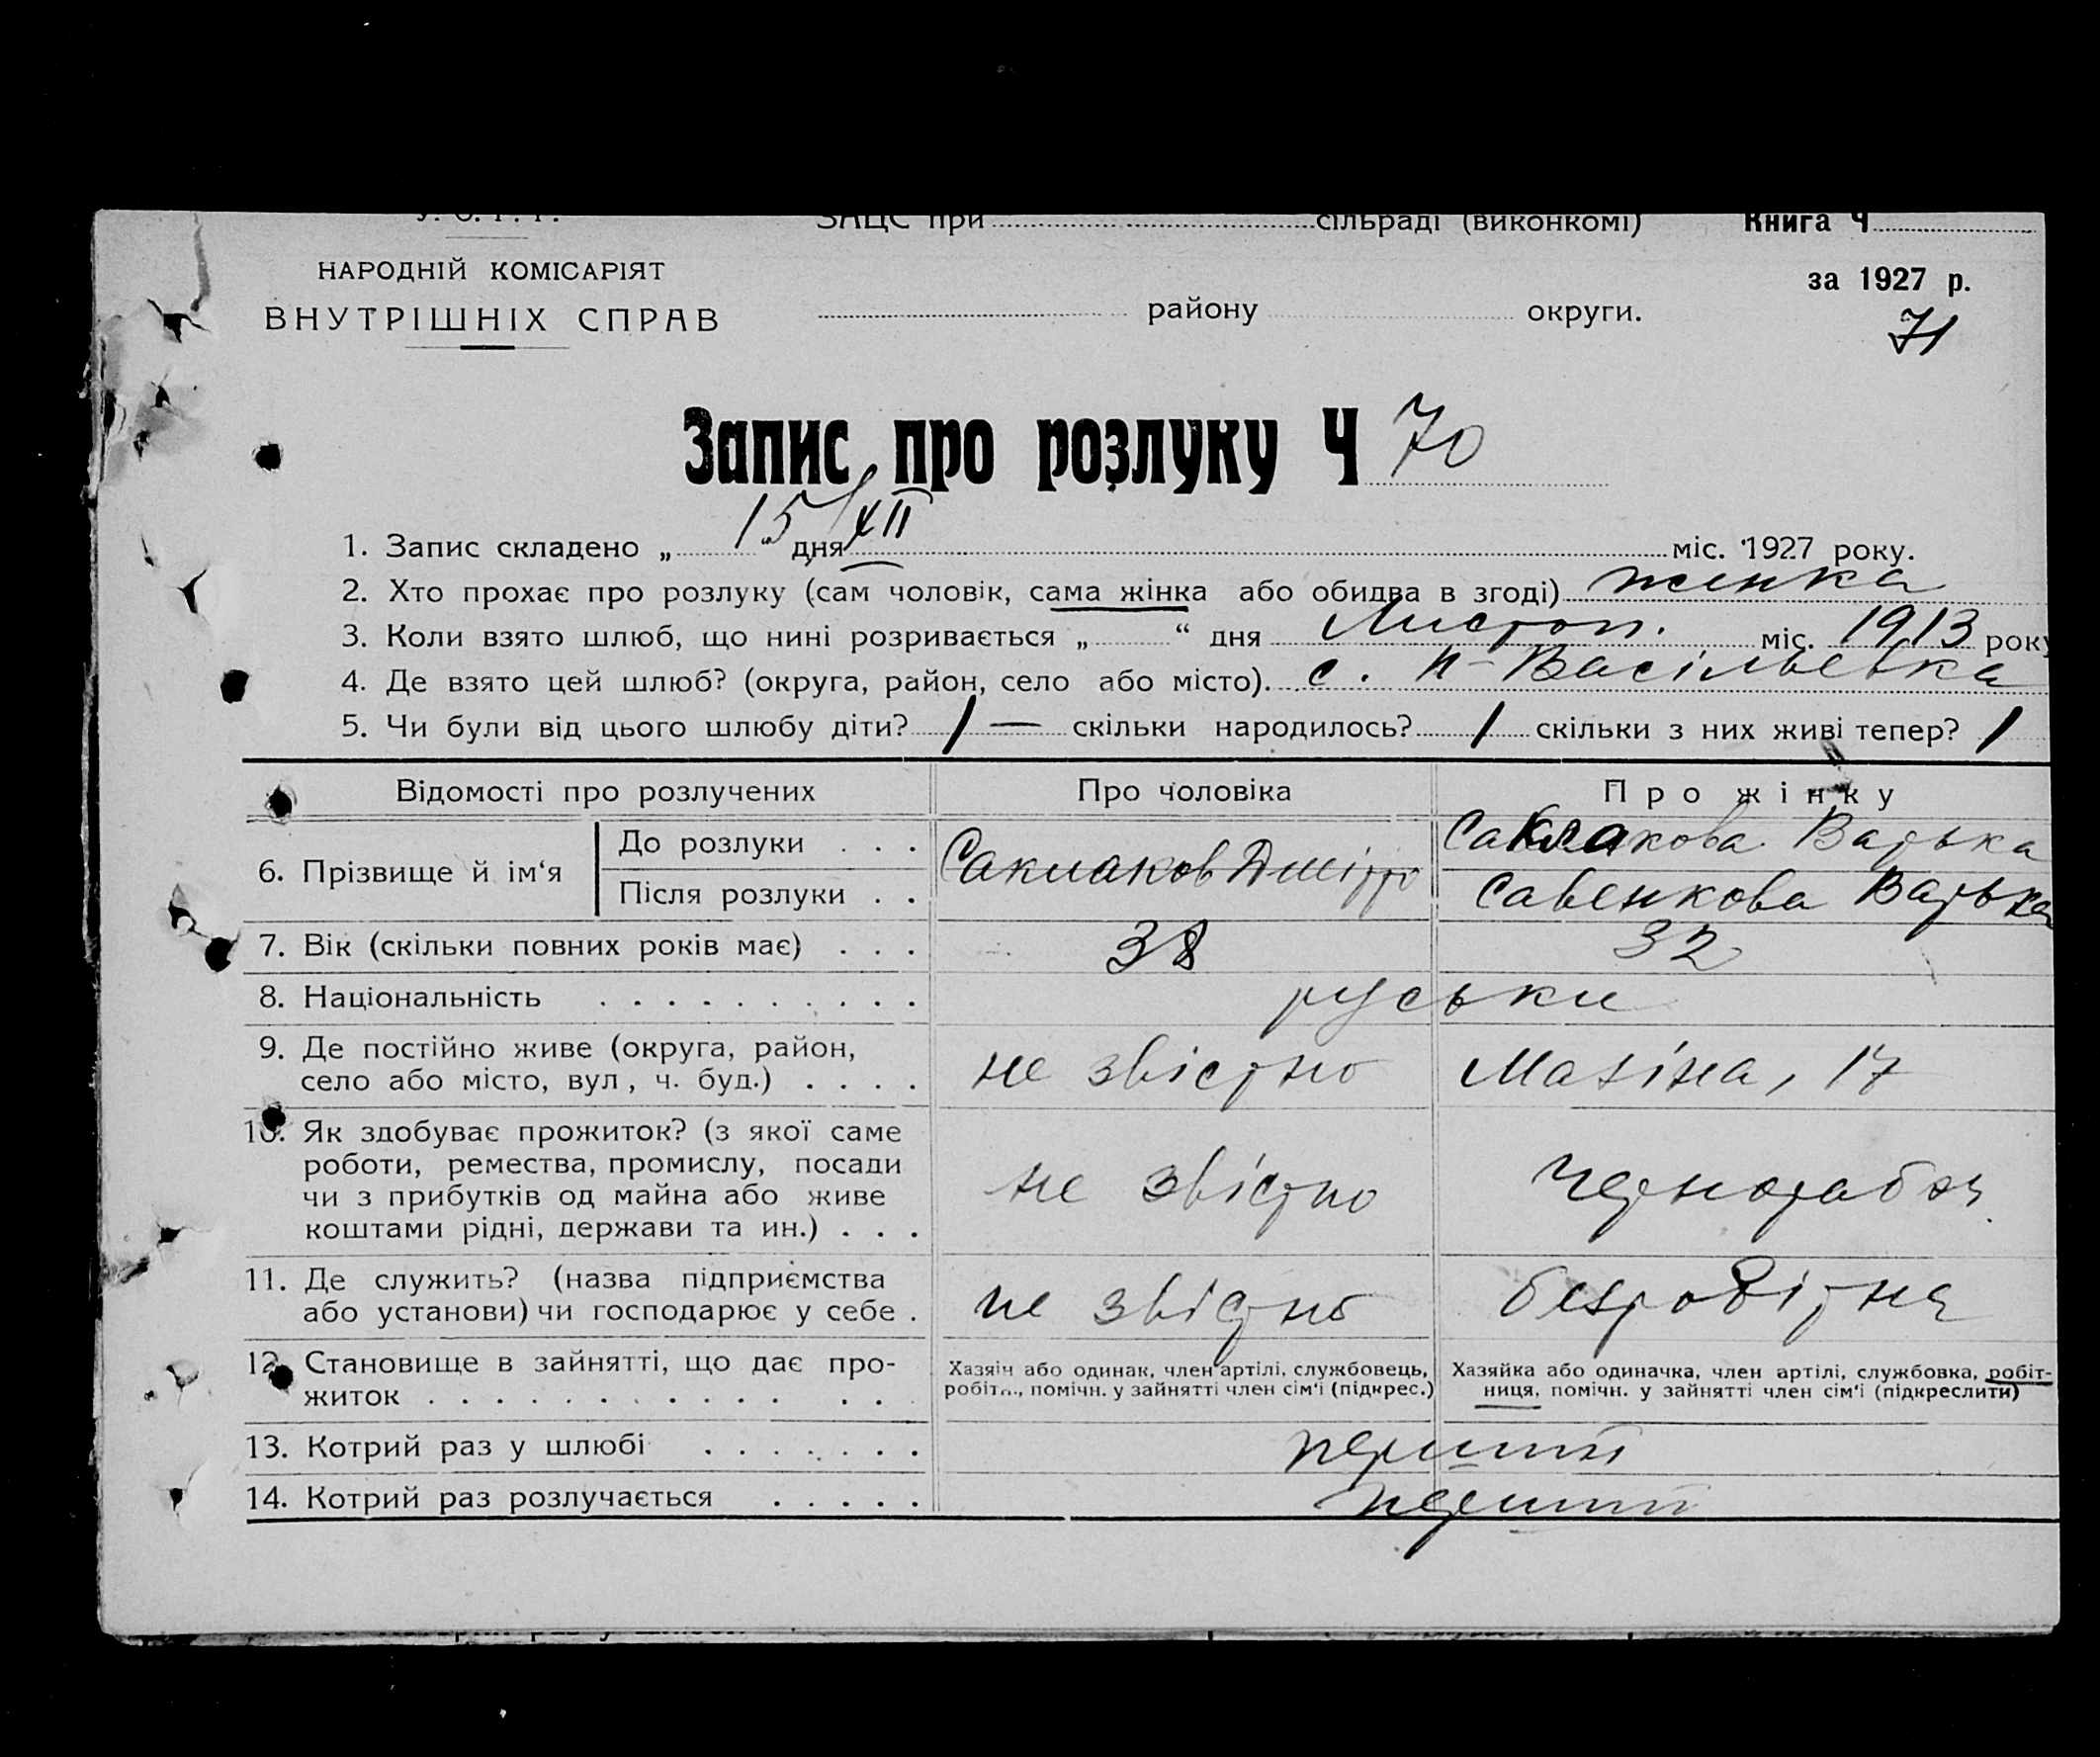 У. С. Р. Р.
ЗАЦС при сільраді (виконкомі) Книга Ч
НАРОДНІЙ КОМІСАРІЯТ
за 1927 р.
ВНУТРІШНІХ СПРАВ
району округи.
71
Запис про розлуку Ч 70
1. Запис складено „ 15 “ дня XII міс. 1927 року.
2. Хто прохає про розлуку (сам чоловік, сама жінка або обидва в згоді) жинка
3. Коли взято шлюб, що нині розривається „ “ дня Листоп. міс. 1913 року
4. Де взято цей шлюб? (округа, район, село або місто). с. Н-Васільевка
5. Чи були від цього шлюбу діти? 1 — скільки народилось? 1 скільки з них живі тепер? 1
Відомості про розлучених Про чоловіка Про жінку
6. Прізвище й ім‘я
До розлуки . . . Саклаков Дмітро Саклакова Варька
Після розлуки . . Савенкова Варька
7. Вік (скільки повних років має) . . . 38 32
8. Національність . . . . . . . . . . руськи
9. Де постійно живе (округа, район,
село або місто, вул, ч. буд.) . . . . не звістно Мазіна, 17
10. Як здобуває прожиток? (з якої саме
роботи, ремества, промислу, посади
чи з прибутків од майна або живе
коштами рідні, держави та ин.) . . . не звістно чернорабоч.
11. Де служить? (назва підприємства
або установи) чи господарює у себе . не звістно безробітна
12. Становище в зайнятті, що дає про-
житок . . . . . . . . . . . . .
Хазяїн або одинак, член артілі, службовець,
робітн., помічн. у зайнятті член сім‘ї (підкрес.)
Хазяйка або одиначка, член артілі, службовка, робіт-
ниця, помічн. у зайнятті член сім‘ї (підкреслити)
13. Котрий раз у шлюбі . . . . . . . перший
14. Котрий раз розлучається . . . . . перший